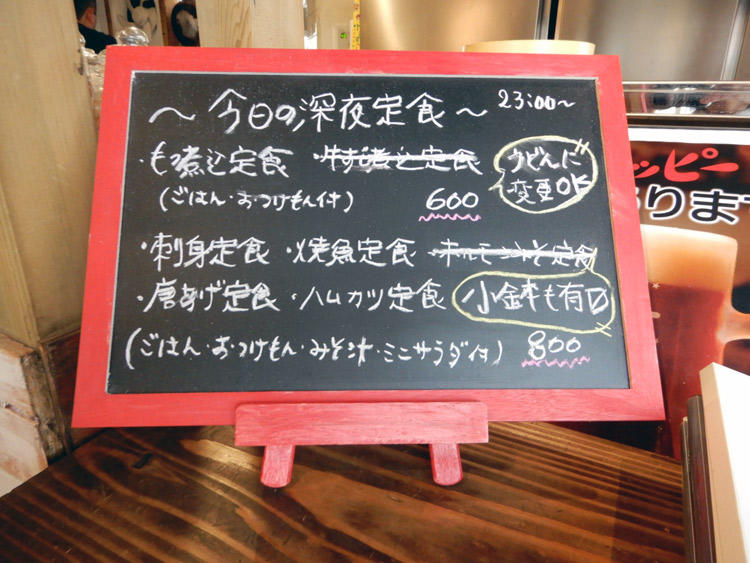 ～今日の深夜定食～ 23:00～
・もつ煮込定食 ・牛すじ煮込定食
うどんに
変更OK
(ごはん・お・つけもん付) 600
・刺身定食 ・焼魚定食 ・ホルモンみそ定食
・唐あげ定食 ・ハムカツ定食 小鉢も有り
(ごはん・お・つけもん・みそ汁・ミニサラダ付) 800
ッピー
ります